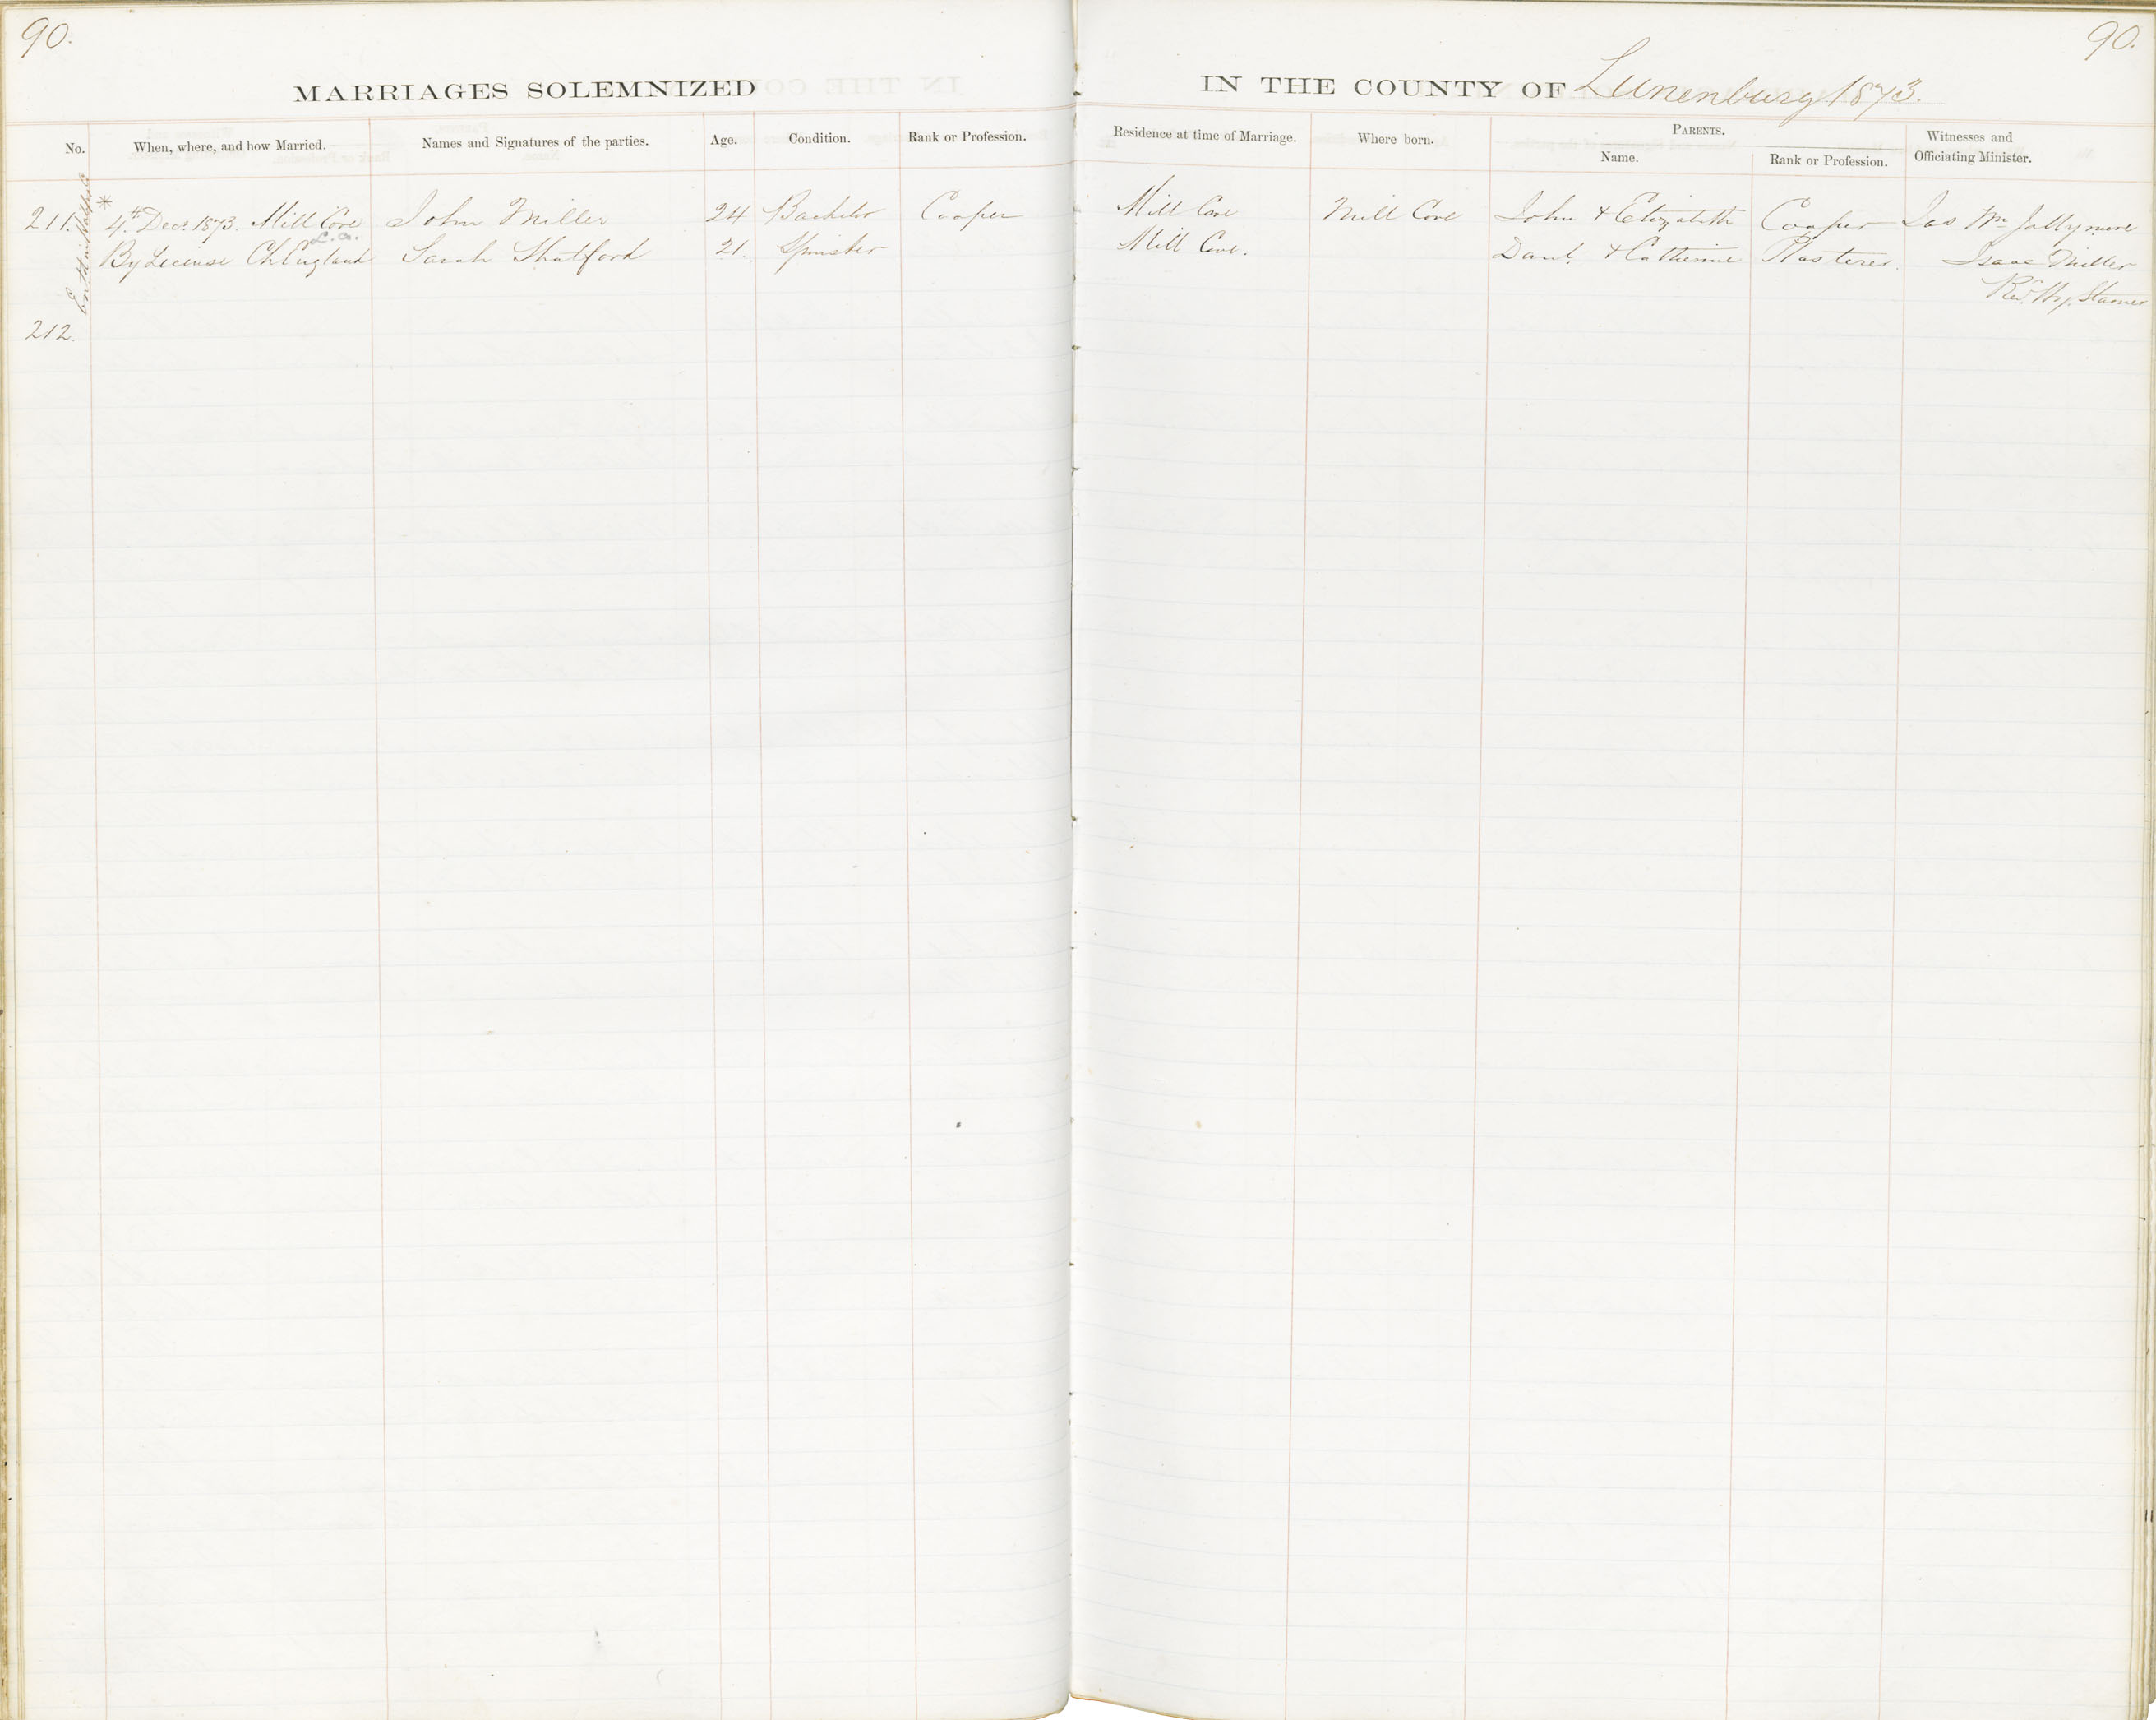 90.
90.
MARRIAGES SOLEMNIZED
IN THE COUNTY OF Lunenburg 1873.
No.
When, where, and how Married.
Names and Signatures of the parties.
Age.
Condition.
Rank or Profession.
Residence at time of Marriage.
Where born.
PARENTS.
Name.
Rank or Profession.
Witnesses and
Officiating Minister.
211. 4th Dec. 1873. Mill Cove John Miller 24 Bachelor Cooper Mill Cove Mill Cove John & Elizabeth Cooper Jas Wm Jollymore
By License Ch England Sarah Shatford 21. Spinster Mill Cove. Danl. & Catherine Plasterer. Isaac Miller
Revd. Hy. Stamer
212.